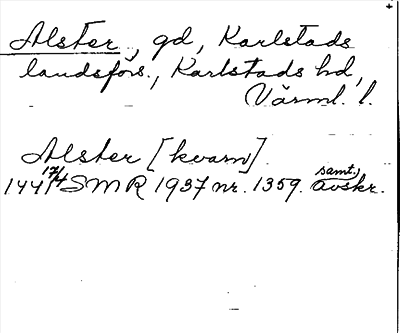 Alster, gd, Karlstads
landsförs., Karlstads hd,
Värml. l.
Alster [kvarn].
1441 17/4 SMR 1937 nr. 1359. samt.) avskr.